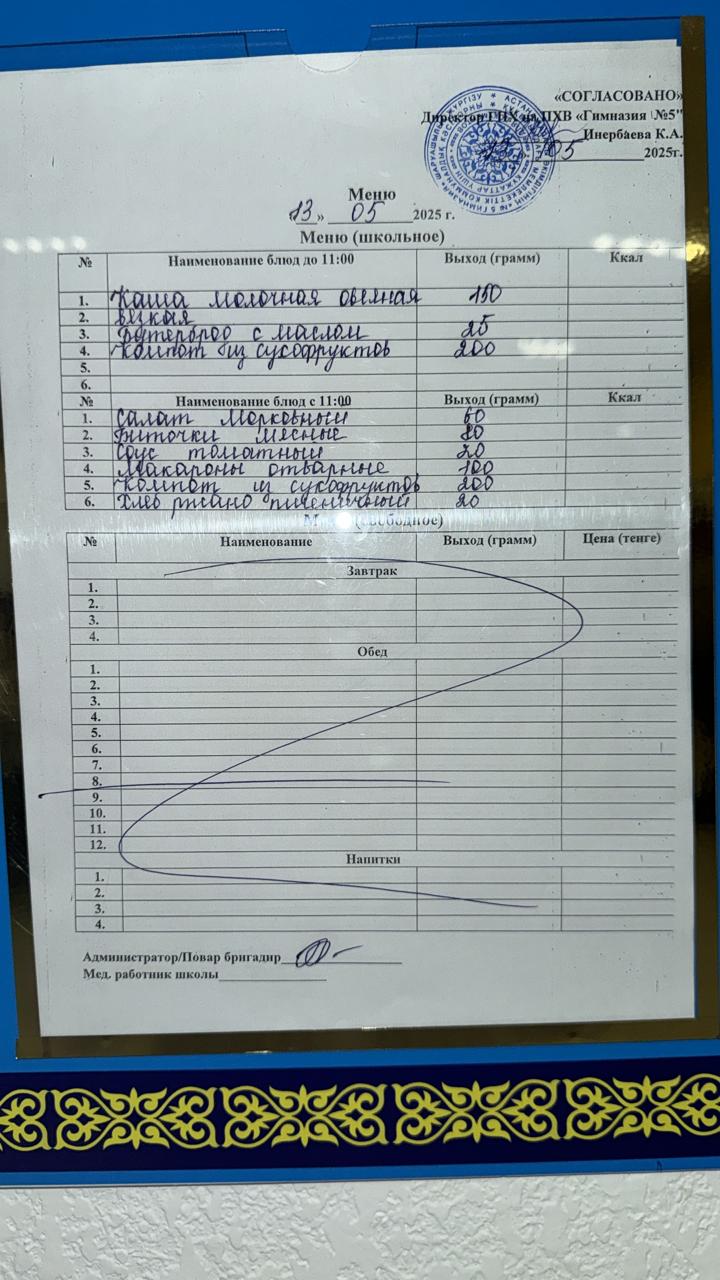 «СОГЛАСОВАНО»
Директор ГКП на ПХВ «Гимназия №5"
Инербаева К.А.
05 2025г.
Меню
13 » 05 2025 г.
Меню (школьное)
№ Наименование блюд до 11:00 Выход (грамм) Ккал
1. Каша молочная овсяная 150
2. вязкая
3. Бутерброд с маслом 25
4. Компот из сухофруктов 200
5.
6.
№ Наименование блюд с 11:00 Выход (грамм) Ккал
1. Салат Морковный 60
2. Биточки мясные 80
3. Соус томатный 20
4. Макароны отварные 100
5. Компот из сухофруктов 200
6. Хлеб ржано пшеничный 20
(свободное)
№ Наименование Выход (грамм) Цена (тенге)
Завтрак
1.
2.
3.
4.
Обед
1.
2.
3.
4.
5.
6.
7.
8.
9.
10.
11.
12.
Напитки
1.
2.
3.
4.
Администратор/Повар бригадир
Мед. работник школы